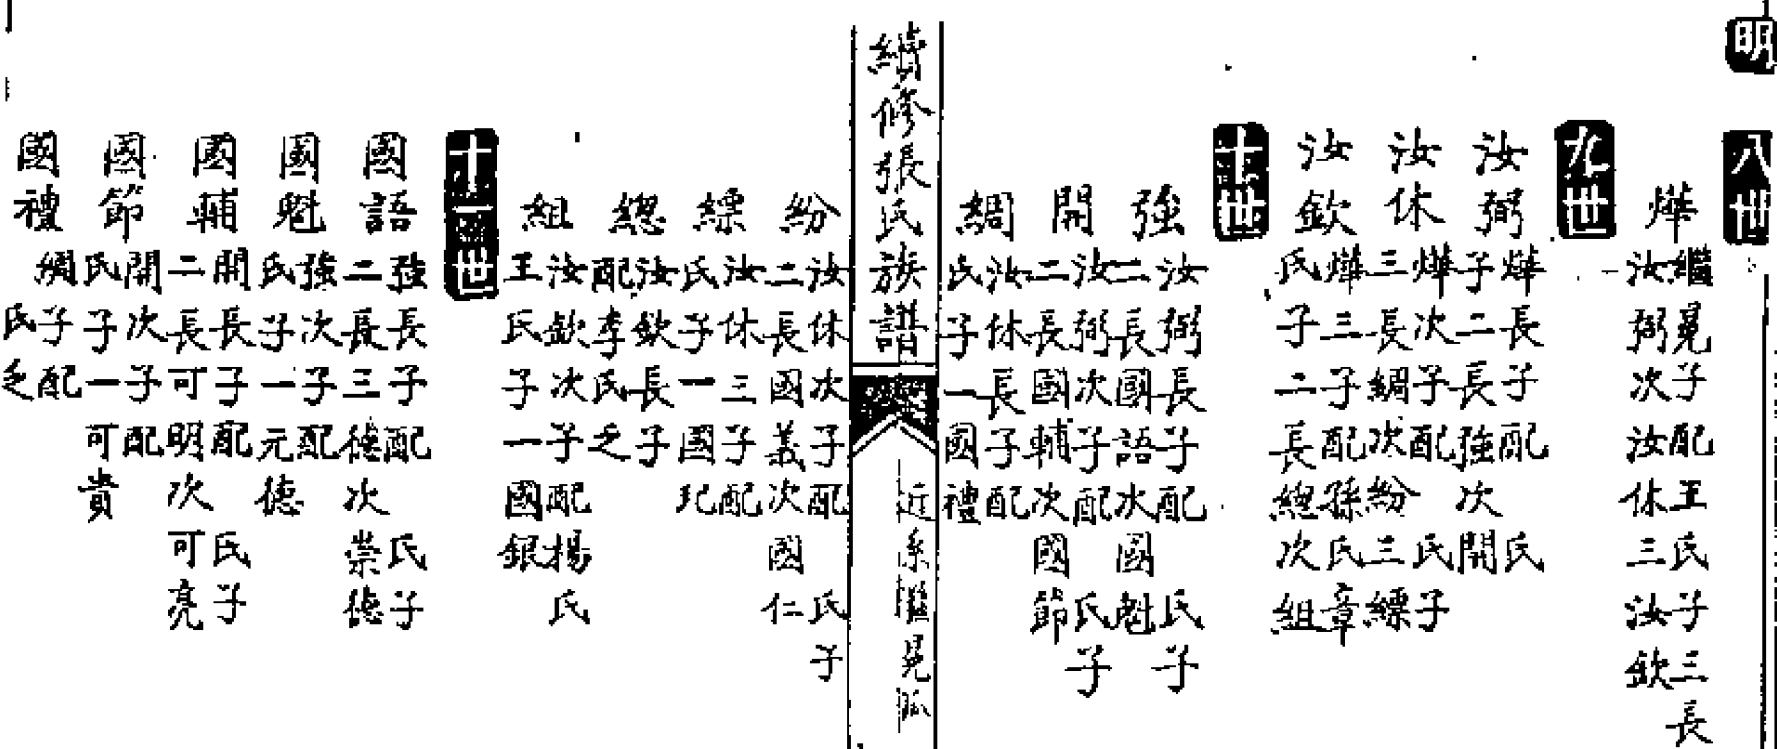 明
八世
燁 繼晃子配王氏子三長
汝弼次汝休三汝欽
九世
汝弼 燁長子配 氏
子二長強次開
汝休 燁次子配 氏子
三長綢次紛三縹
汝欽 燁三子配孫氏章
氏子二長總次組
十世
強 汝弼長子配 氏子
二長國語次國魁
開 汝弼次子配 氏子
二長國輔次國節
綢 汝休長子配
氏子一國禮
續修張氏族譜
近系繼晃派
紛 汝休次子配 氏子
二長國義次國仁
縹 汝休三子配
氏子一國玘
總 汝欽長子
配李氏乏
組 汝欽次子配楊氏
王氏子一國銀
十一世
國語 強長子配 氏子
二長三德次崇德
國魁 強次子配
氏子一元德
國輔 開長子配 氏子
二長可明次可亮
國節 開次子配
氏子一可貴
國禮 綢子配
氏乏